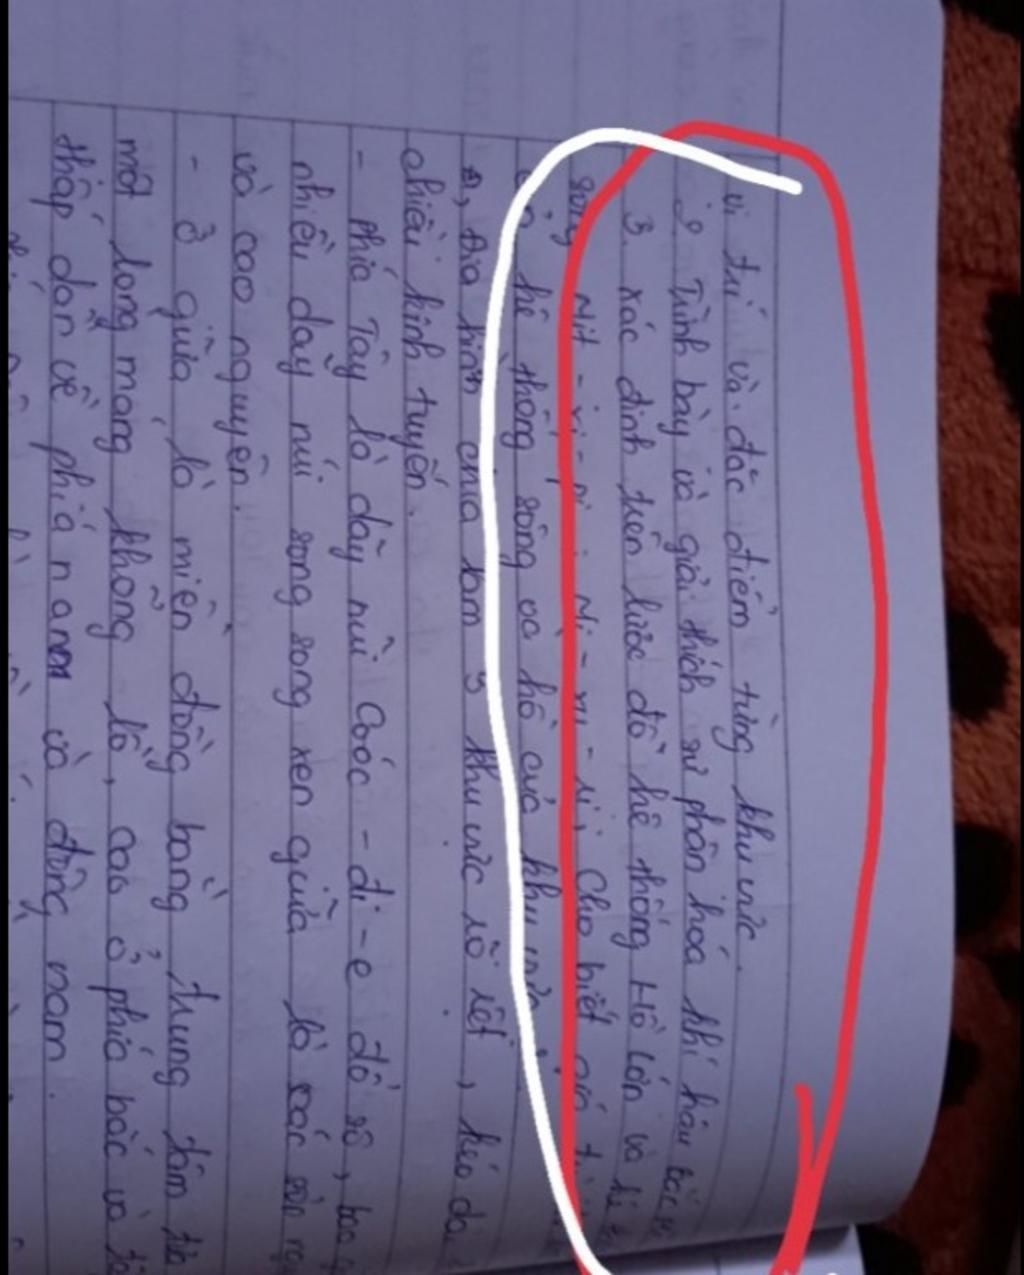 vị trí và đặc điểm từng khu vực.
Trình bày và giải thích sự phân hoá khí hậu Bắc
3. Xác định trên lược đồ hệ thống Hồ lớn và hệ
sông Mit-xi-pi, Mi-xu-ri, Cho biết giá
hệ thống sông và hồ của khu vực
Địa hình chia làm 3 khu vực rõ rệt, kéo dài
chiều kinh tuyến.
- phía Tây là dãy núi Coóc-đi-e đồ sộ, bao
nhiều dãy núi song song xen giữa là các sơn
và cao nguyên.
- ở giữa là miền đồng bằng trung tâm
một lòng máng khổng lồ, cao ở phía bắc và
thấp dần về phía nam và đông nam.